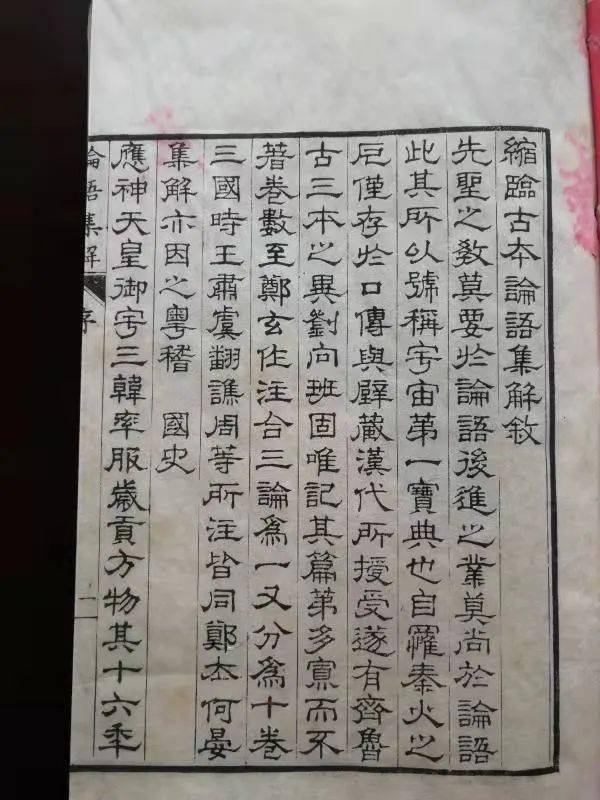 縮臨古本論語集解敘
先聖之教莫要於論語後進之業莫尚於論語
此其所以號稱宇宙第一寶典也自罹秦火之
厄僅存於口傳與壁藏漢代所授受遂有齊魯
古三本之異劉向班固唯記其篇第多寡而不
著卷數至鄭玄作注合三論爲一又分爲十卷
三國時王肅虞翻譙周等所注皆同鄭本何晏
集解亦因之粵稽 國史
應神天皇御宇三韓率服歲貢方物其十六年
論語集解 序 一